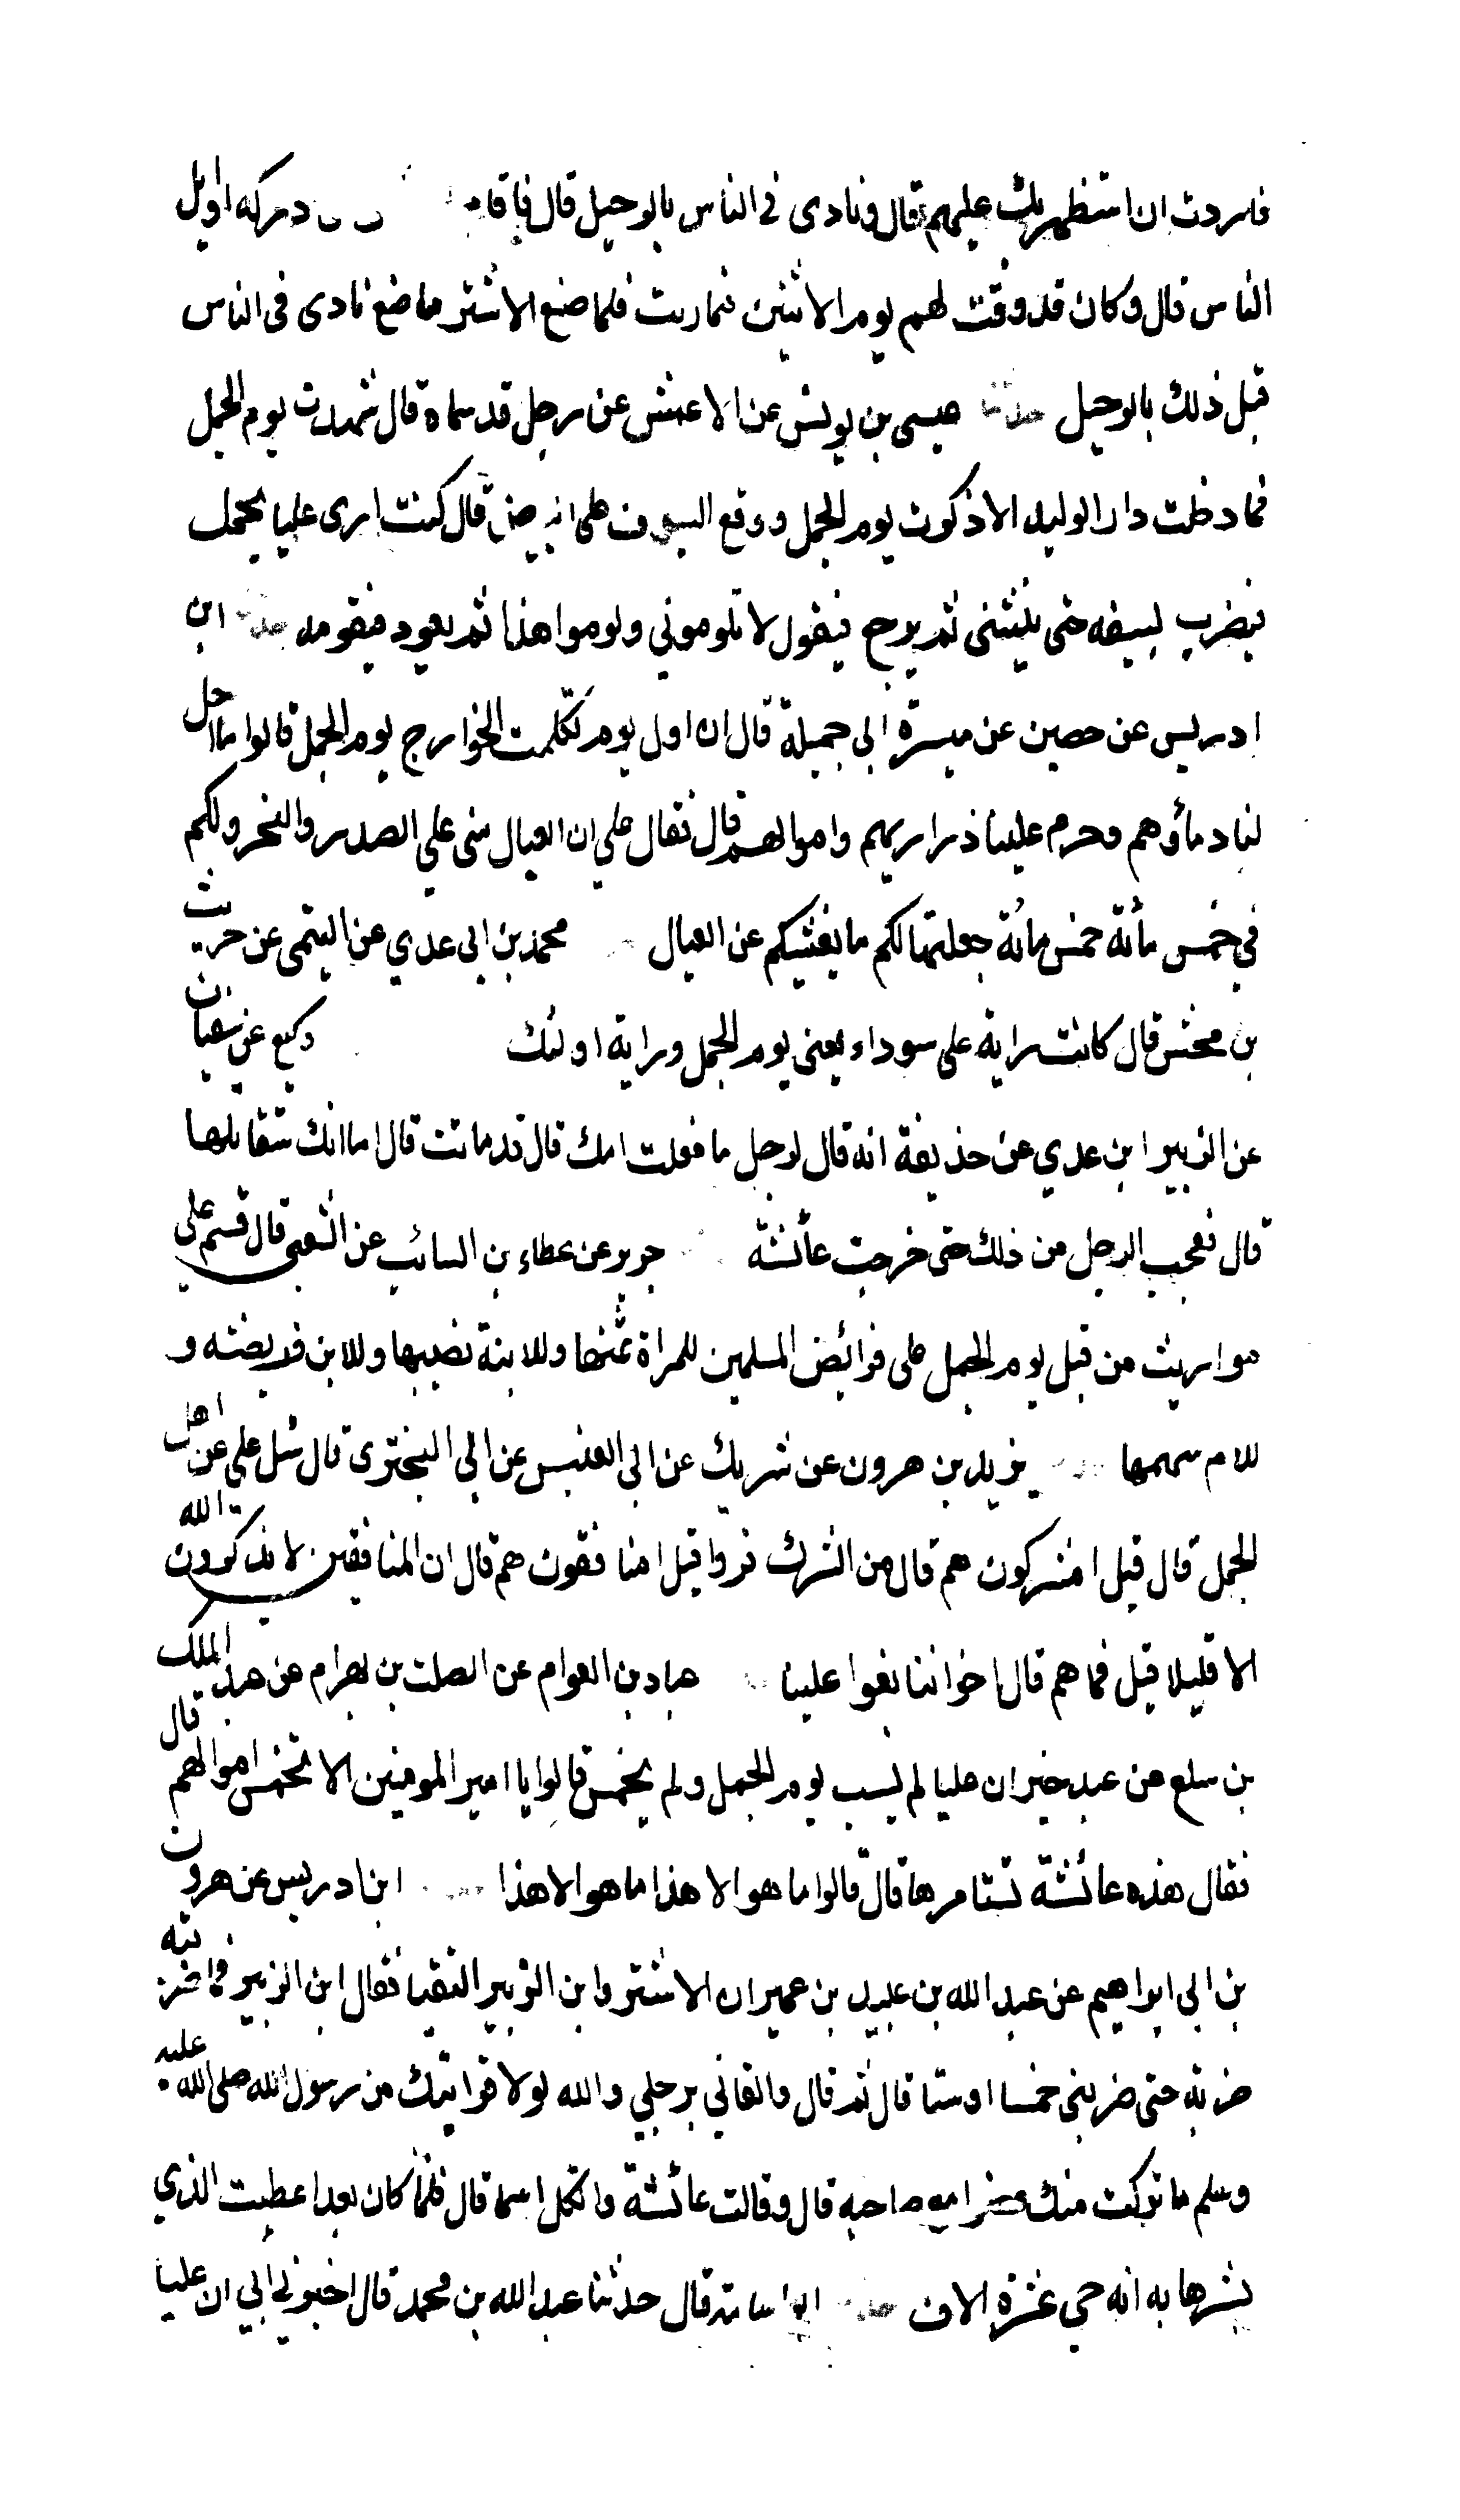 فاردت ان استظهر بك عليهم قال فنادى فى الناس بالرحيل قال فاقام دركه اوايل
الناس قال وكان قد وقت لهم يوم الاثنين فما ريت فلما صنع الاشتر ما صنع نادى فى الناس
قبل ذلك بالرحيل حدثنا عيسى بن يونس عن الاعمش عن رجل قد سماه قال شهدت يوم الجمل
فما دخلت دار الوليد الا ذكرت يوم الجمل ووقع السيوف على البيض قال كنت ارى عليا يحمل
فيضرب بسيفه حتى ينثنى ثم يرجع فيقول لا تلوموني ولوموا هذا ثم يعود فيقومه حدثنا ابن
ادريس عن حصين عن ميسرة ابي جميلة قال ان اول يوم تكلمت الخوارج يوم الجمل قالوا ما احل
لنا دماؤهم وحرم علينا ذراريهم واموالهم قال فقال علي ان العيال منى علي الصدر والنحر ولكم
في خمس مائة خمس مائة جعلتها لكم ما يغنيكم عن العيال محمد بن ابى عدي عن التيمى عن حريث
بن مخش قال كانت راية على سوداء يعنى يوم الجمل وراية اولئك وكيع عن سفيان
عن الزبير ابن عدي عن حذيفة انه قال لرجل ما فعلت امك قال قد ماتت قال اما انك ستقاتلها
قال فعجب الرجل من ذلك حتى خرجت عائشة جرير عن عطاء بن السائب عن الشعبى قال قسم علي
مواريث من قتل يوم الجمل على فرائض المسلمين للمراة ثمنها وللابنة نصيبها وللابن فريضته و
للام سهمها يزيد بن هرون عن شريك عن ابى العنبس عن ابي البخترى قال سئل علي عن اهل
الجمل قال قيل امشركون هم قال من الشرك فروا قيل امنافقون هم قال ان المنافقين لا يذكرون الله
الا قليلا قيل فما هم قال اخواننا بغوا علينا عباد بن العوام عن الصلت بن بهرام عن عبد الملك
بن سلع عن عبد خير ان عليا لم يسب يوم الجمل ولم يخمس قالوا يا امير المومنين الا تخمس اموالهم قال
فقال هذه عائشة تستامرها قال قالوا ما هو الا هذا ما هو الا هذا ابن ادريس عن هرون
بن ابى ابراهيم عن عبد الله بن عبيد بن عمير ان الاشتر وابن الزبير التقيا فقال ابن الزبير فما ضربته
ضربة حتى ضربنى خمسا او ستا قال ثم قال والقاني برجلي والله لولا قرابتك من رسول الله صلى الله عليه
وسلم ما تركت منك عضوا مع صاحبه قال وقالت عائشة واثكل اسما قال فلما كان بعد اعطت الذي
بشرها به انه حي عشرة الاف حدثنا ابو اسامة قال حدثنا عبد الله بن محمد قال اخبرني ابي ان عليا